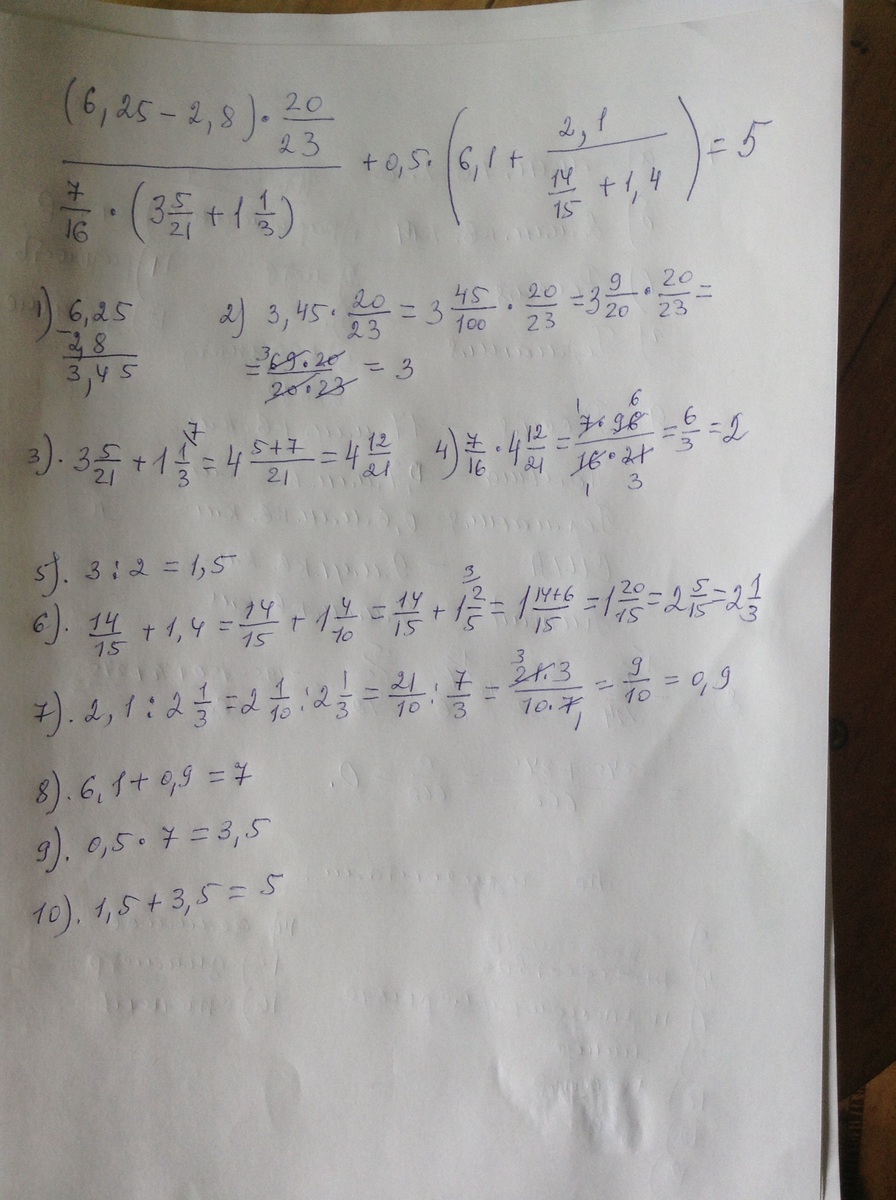 (6,25 - 2,8) · 20/23 / 7/16 · (3 5/21 + 1 1/3) + 0,5 · (6,1 + 2,1 / 14/15 + 1,4) = 5
1) 6,25 - 2,8 3,45
2) 3,45 · 20/23 = 3 45/100 · 20/23 = 3 9/20 · 20/23 =
= 3 69·20 / 20·23 = 3
3). 3 5/21 + 1 1/3 7 = 4 5+7/21 = 4 12/21
4) 7/16 · 4 12/21 = 1 7·96 6 / 16·21 1 3 = 6/3 = 2
5). 3 : 2 = 1,5
6). 14/15 + 1,4 = 14/15 + 1 4/10 = 14/15 + 1 2/5 3 = 1 14+6/15 = 1 20/15 = 2 5/15 = 2 1/3
7). 2,1 : 2 1/3 = 2 1/10 : 2 1/3 = 21/10 : 7/3 = 3 21·3 / 10·7 1 = 9/10 = 0,9
8). 6,1 + 0,9 = 7
9). 0,5 · 7 = 3,5
10). 1,5 + 3,5 = 5